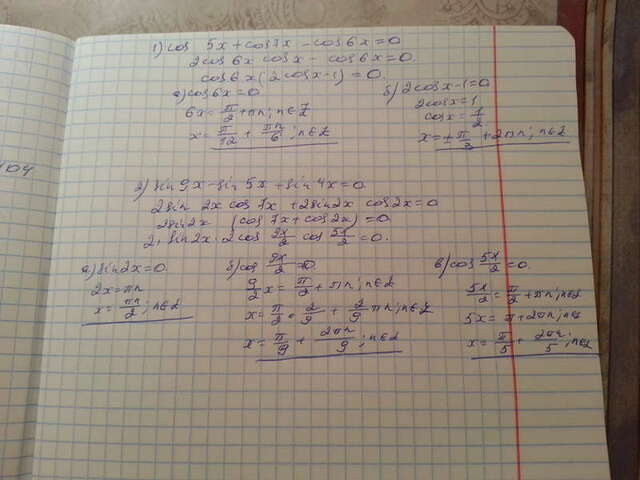 1) cos 5x + cos 7x - cos 6x = 0
2cos 6x cos x - cos 6x = 0.
cos 6x (2cos x - 1) = 0.
а) cos 6x = 0
6x = π/2 + πn; n∈Z
x = π/12 + πn/6; n∈Z
б) 2cos x - 1 = 0
2cos x = 1
cos x = 1/2
x = ± π/3 + 2πn; n∈Z
2) sin 9x - sin 5x + sin 4x = 0
2sin 2x cos 7x + 2sin 2x cos 2x = 0
2sin 2x (cos 7x + cos 2x) = 0
2 · sin 2x · 2cos 9x/2 cos 5x/2 = 0.
а) sin 2x = 0.
2x = πn
x = πn/2; n∈Z
б) cos 9x/2 = 0.
9/2 x = π/2 + πn; n∈Z
x = π/2 · 2/9 + 2/9 πn; n∈Z
x = π/9 + 2πn/9; n∈Z
в) cos 5x/2 = 0.
5x/2 = π/2 + πn; n∈Z
5x = π + 2πn; n∈Z
x = π/5 + 2πn/5; n∈Z